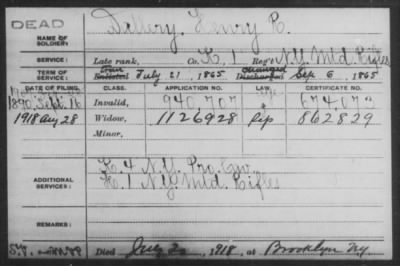 DEAD
NAME OF SOLDIER: Dallery, Henry R.
SERVICE: Late rank, Co. K, 1 Reg't N.Y. Mtd. Rifles
TERM OF SERVICE: Enlisted July 21, 1865 Discharged Sep 6, 1865
DATE OF FILING. CLASS. APPLICATION NO. LAW. CERTIFICATE NO.
1890, Sept. 16 Invalid, 940,707 674,073
1918 Aug 28 Widow, 1126928 862829
Minor,
ADDITIONAL SERVICES: K. 4 N.Y. Pro. Cav.
K. 1 N.Y. Mtd. Rifles
REMARKS:
Died July 1918, at Brooklyn NY